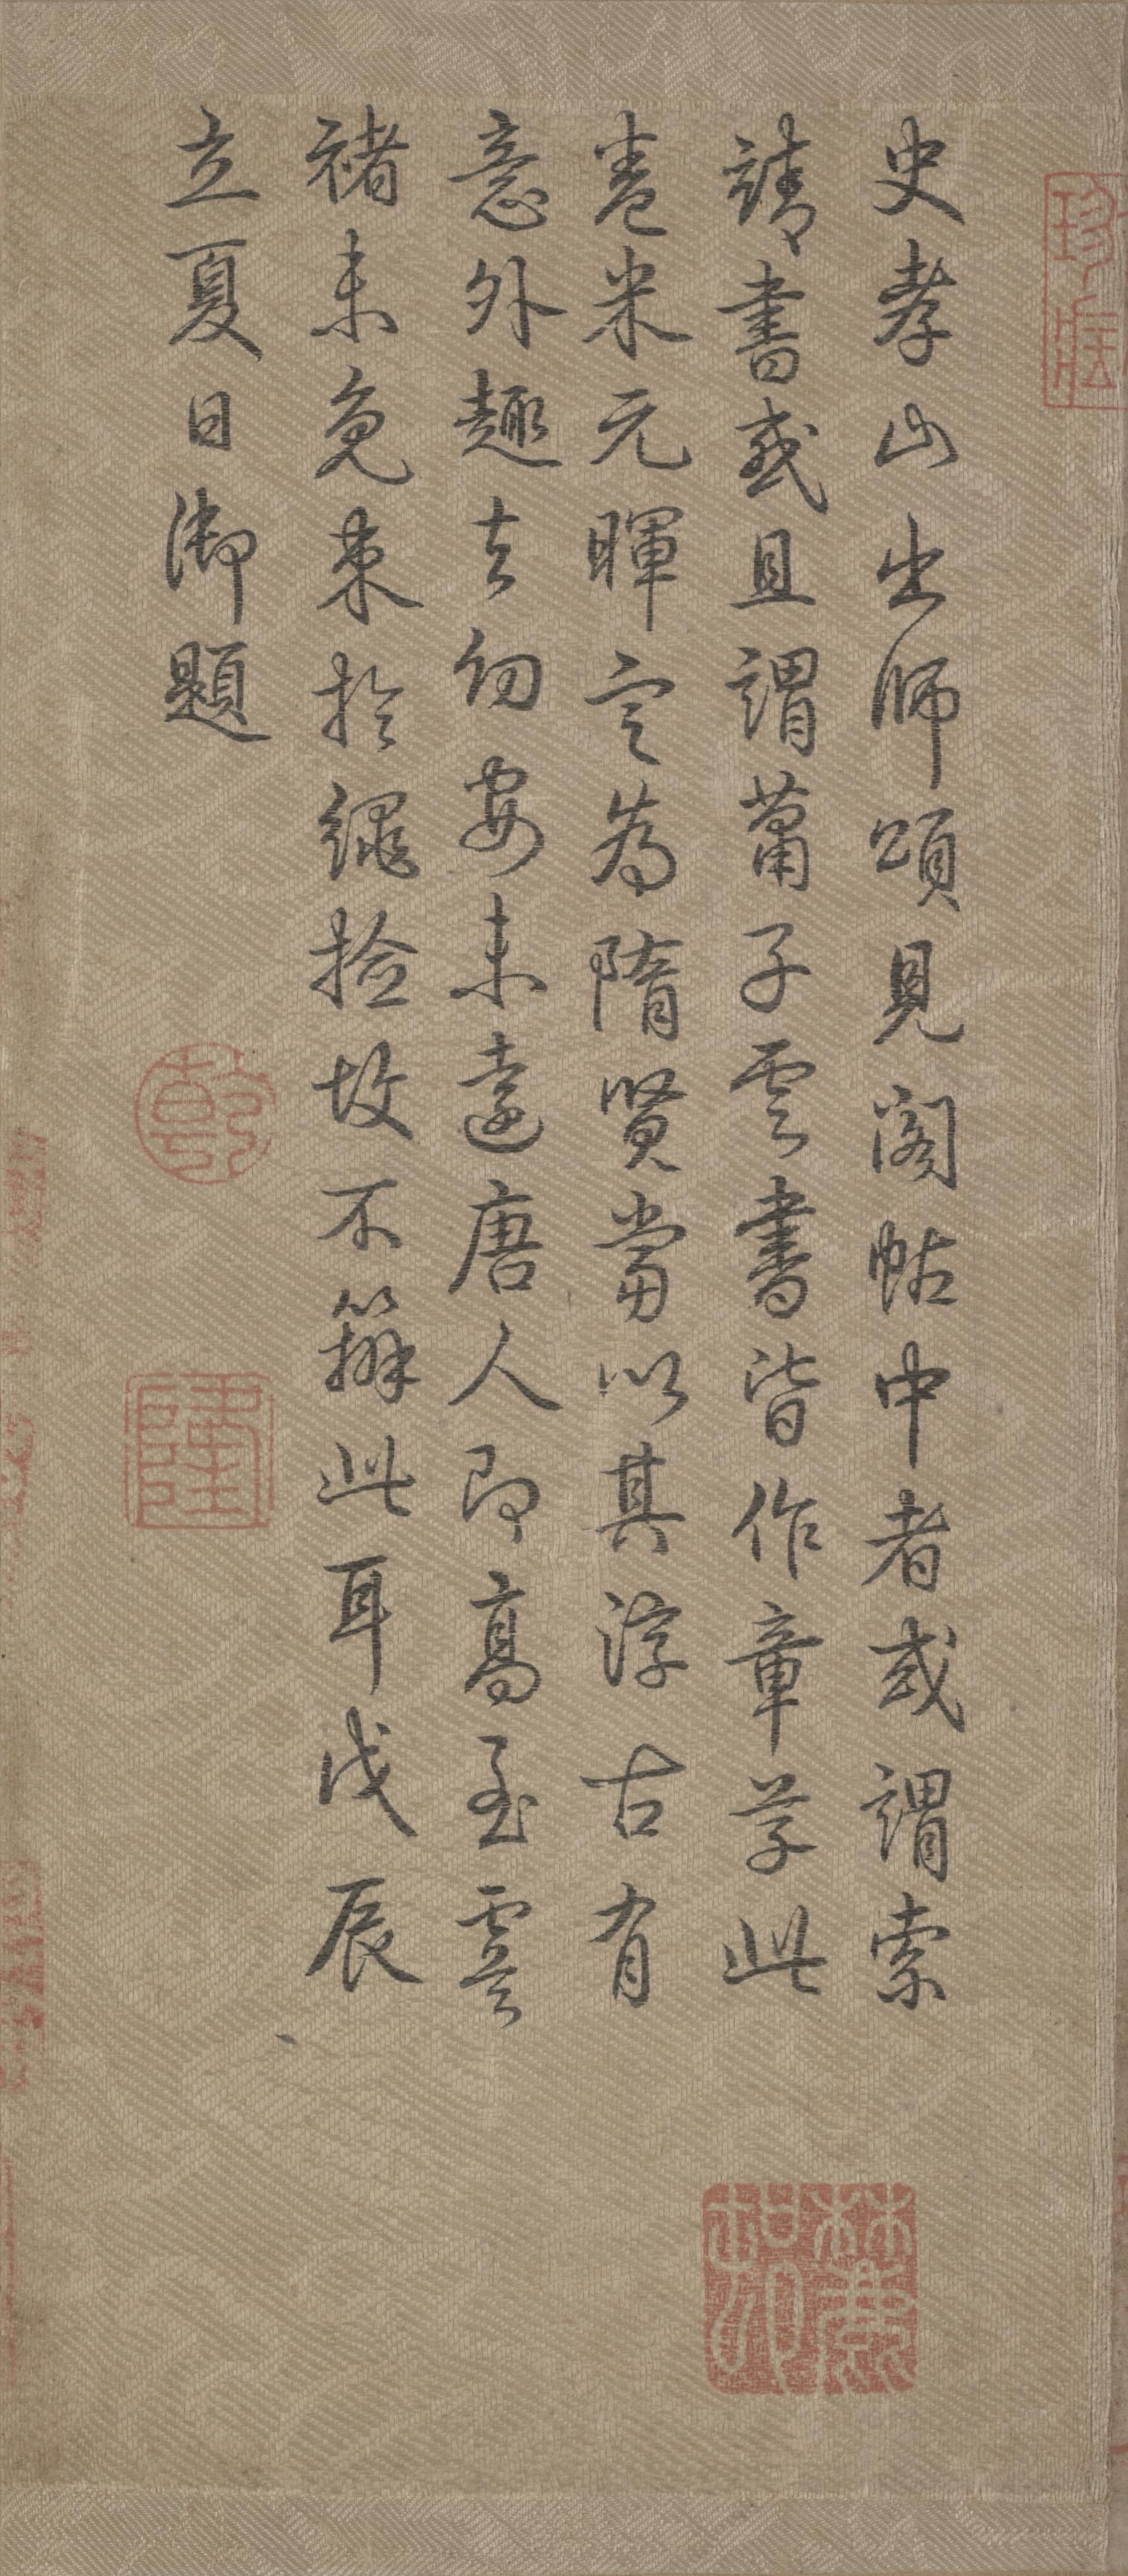 珍藏
史孝山出師頌見閣帖中者或謂索
靖書或且謂蕭子雲書皆作章草此
卷米元暉定為隋賢當以其淳古有
意外趣去幼安未遠唐人即高至虞
褚未免束於繩撿故不辦此耳戊辰
立夏日御題
乾
隆